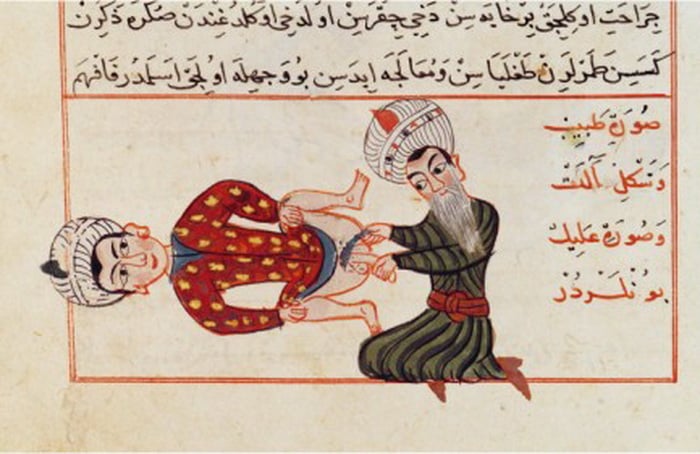 جراحت اوكلجق بر خايه سن دخي چقرسن اولدخى اوكلدغندن صكره ذكرن
كسسن طمرلرن طغلياسن ومعالجه ايدسن بو وجهيله اولجق اسلمدر فافهم
صورة طبيب
وشكل آلت
وصورة عليل
بونلردر